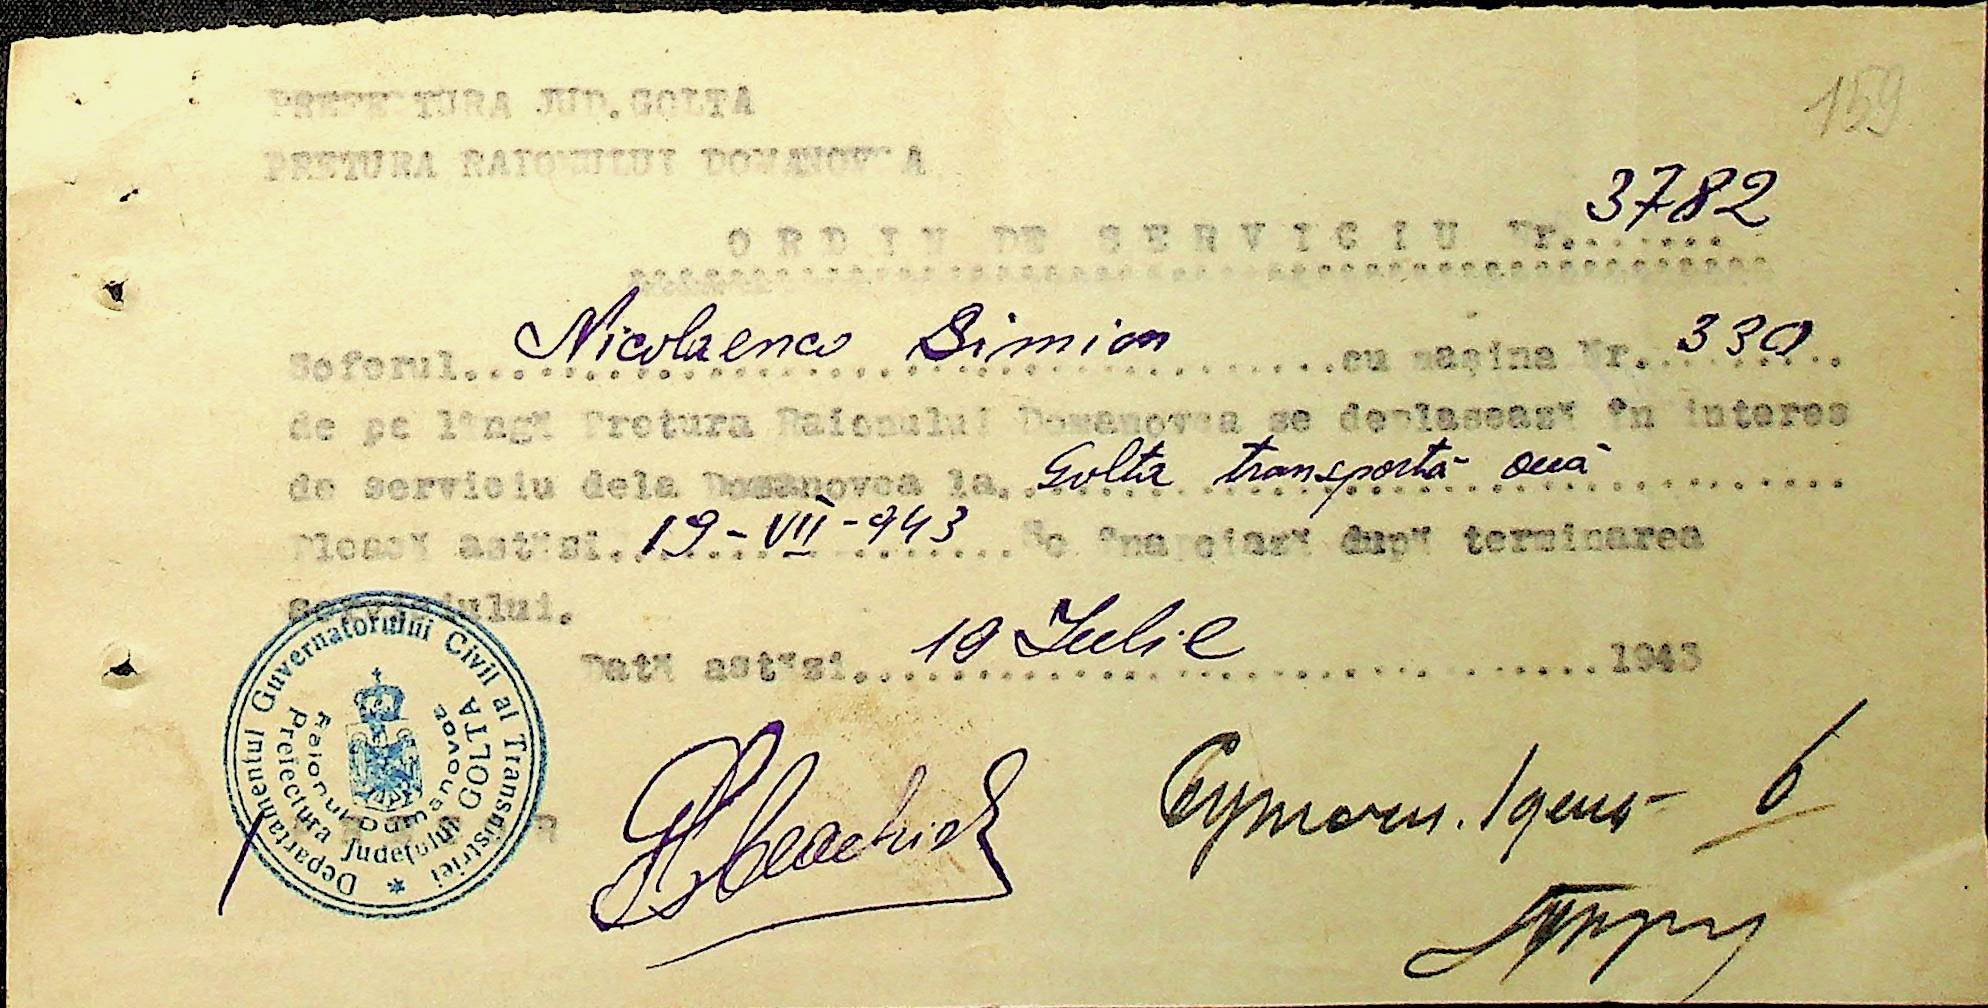 159
PREFECTURA JUD. GOLTA
PRETURA RAIONULUI DOMANOVCA
3782
ORDIN DE SERVICIU Nr.......
Soferul Nicolaenco Simion cu mașina Nr. 330
de pe lîngă Pretura Raionului Domanovca se deplasează în interes
de serviciu dela Domanovca la Golta transportă ouă
Pleacă astăzi 19-VII-943 Se înapoiază după terminarea
serviciului.
Dată astăzi 19 Iulie 1943
Departamentul Guvernatorului Civil al Transnistriei
Prefectura Județului GOLTA
Raionul Dumanovca